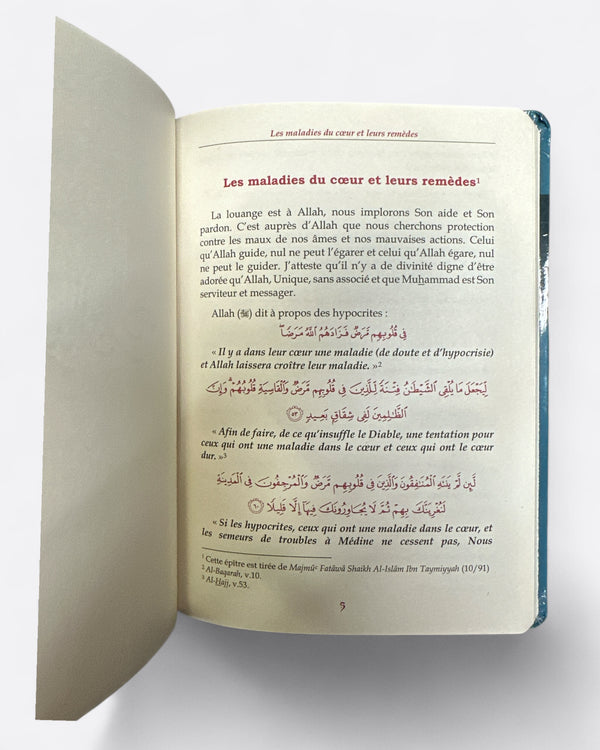 Les maladies du cœur et leurs remèdes
Les maladies du cœur et leurs remèdes¹
La louange est à Allah, nous implorons Son aide et Son
pardon. C’est auprès d’Allah que nous cherchons protection
contre les maux de nos âmes et nos mauvaises actions. Celui
qu’Allah guide, nul ne peut l’égarer et celui qu’Allah égare, nul
ne peut le guider. J’atteste qu’il n’y a de divinité digne d’être
adorée qu’Allah, Unique, sans associé et que Muhammad est Son
serviteur et messager.
Allah (ﷻ) dit à propos des hypocrites :
فِي قُلُوبِهِم مَّرَضٌ فَزَادَهُمُ اللَّهُ مَرَضًا
« Il y a dans leur cœur une maladie (de doute et d’hypocrisie)
et Allah laissera croître leur maladie. »²
لِّيَجْعَلَ مَا يُلْقِي الشَّيْطَٰنُ فِتْنَةً لِّلَّذِينَ فِي قُلُوبِهِم مَّرَضٌ وَالْقَاسِيَةِ قُلُوبُهُمْ ۗ وَإِنَّ
الظَّٰلِمِينَ لَفِي شِقَاقٍ بَعِيدٍ ۝٥٣
« Afin de faire, de ce qu’insuffle le Diable, une tentation pour
ceux qui ont une maladie dans le cœur et ceux qui ont le cœur
dur. »³
لَّئِن لَّمْ يَنتَهِ الْمُنَٰفِقُونَ وَالَّذِينَ فِي قُلُوبِهِم مَّرَضٌ وَالْمُرْجِفُونَ فِي الْمَدِينَةِ
لَنُغْرِيَنَّكَ بِهِمْ ثُمَّ لَا يُجَاوِرُونَكَ فِيهَا إِلَّا قَلِيلًا ۝٦٠
« Si les hypocrites, ceux qui ont une maladie dans le cœur, et
les semeurs de troubles à Médine ne cessent pas, Nous
¹ Cette épître est tirée de Majmûᶜ Fatâwâ Shaikh Al-Islâm Ibn Taymiyyah (10/91)
² Al-Baqarah, v.10.
³ Al-Hajj, v.53.
5